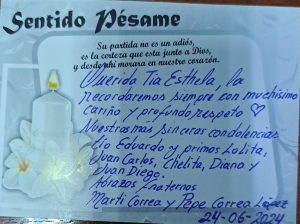 Sentido Pésame
Su partida no es un adiós,
es la certeza que esta junto a Dios,
y desde ahí morara en nuestro corazón.
Querida Tía Esthela, la
recordaremos siempre con muchísimo
cariño y profundo respeto ♡
Nuestras mas sinceras condolencias
tío Eduardo y primos Lolita,
Juan Carlos, Chelita, Diana y
Juan Diego.
Abrazos fraternos
Marti Correa y Pepe Correa López
24-06-2024